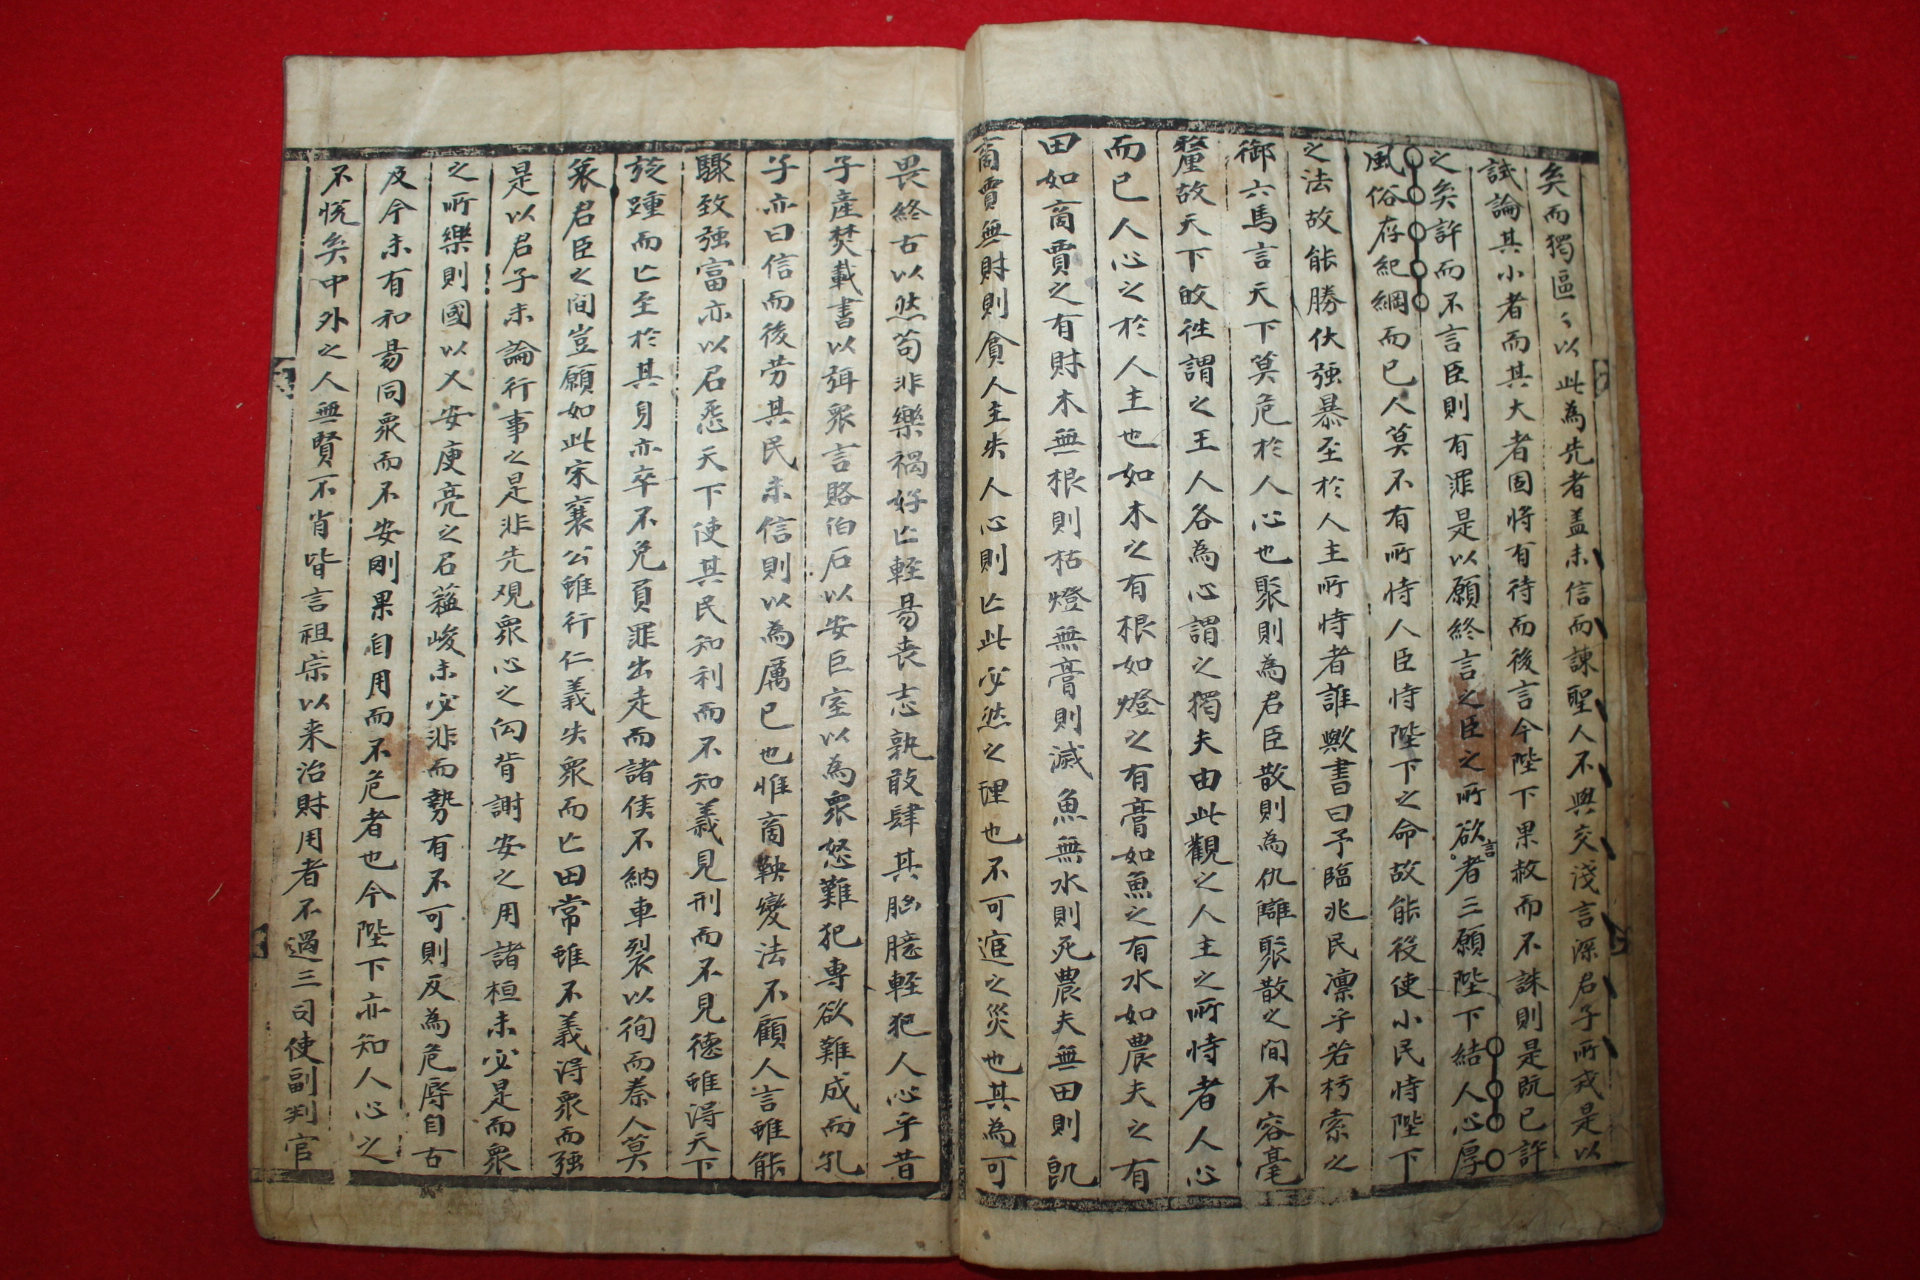 矣而獨區〻以此為先者盖未信而諫聖人不與交淺言深君子所戒是以
試論其小者而其大者固將有待而後言今陛下果赦而不誅則是旣已許
之矣許而不言臣則有罪是以願終言之臣之所欲言者三願陛下結人心厚
風俗存紀綱而已人莫不有所恃人臣恃陛下之命故能役使小民恃陛下
之法故能勝伏强暴至於人主所恃者誰歟書曰予臨兆民凛乎若朽索之
御六馬言天下莫危於人心也聚則為君臣散則為仇讎聚散之間不容毫
釐故天下歸徃謂之王人各為心謂之獨夫由此觀之人主之所恃者人心
而已人心之於人主也如木之有根如燈之有膏如魚之有水如農夫之有
田如商賈之有財木無根則枯燈無膏則滅魚無水則死農夫無田則飢
商賈無財則貧人主失人心則亡此必然之理也不可逭之災也其為可
畏終古以然苟非樂禍好亡輕昜丧志孰敢肆其胸臆輕犯人心乎昔
子產焚載書以弭衆言賂伯石以安巨室以為衆怒難犯專欲難成而孔
子亦曰信而後劳其民未信則以為厲已也惟商鞅變法不顧人言雖能
驟致强富亦以召怨天下使其民知利而不知義見刑而不見德雖淂天下
旋踵而亡至於其身亦卒不免負罪出走而諸侯不納車裂以徇而秦人莫
哀君臣之間豈願如此宋襄公雖行仁義失衆而亡田常雖不義淂衆而强
是以君子未論行事之是非先觀衆心之向背謝安之用諸桓未必是而衆
之所樂則國以乂安庾亮之召蘓峻未必非而勢有不可則反為危辱自古
及今未有和昜同衆而不安剛果自用而不危者也今陛下亦知人心之
不悅矣中外之人無賢不肖皆言祖宗以来治財用者不過三司使副判官